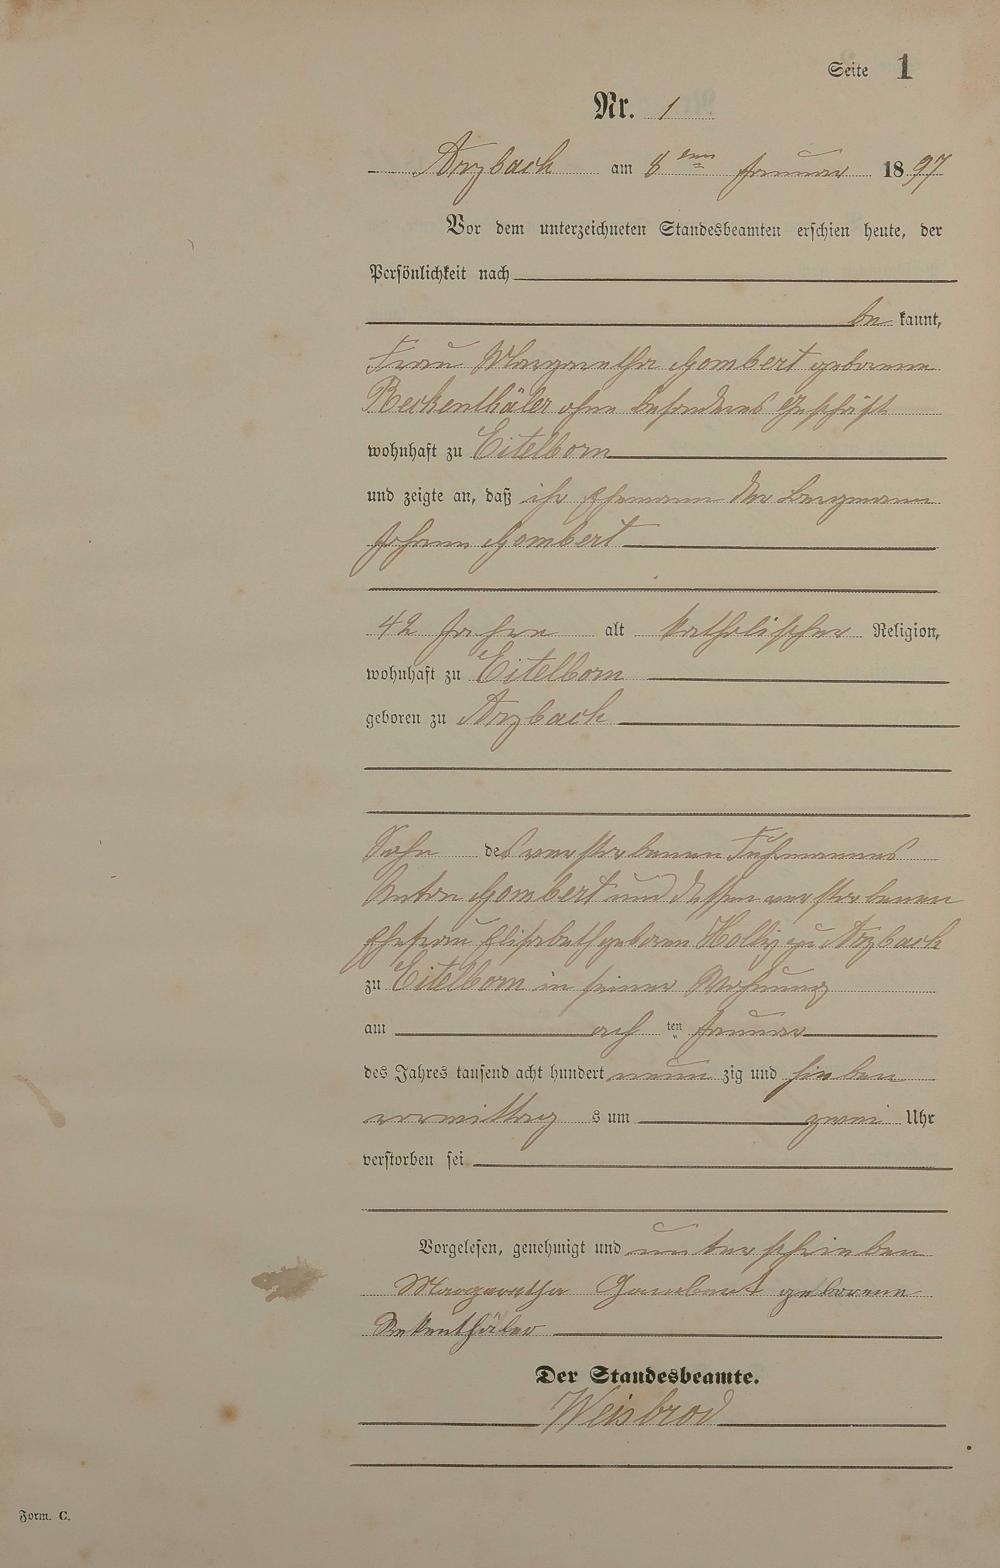 Seite 1
Nr. 1
Arzbach am 8ten Januar 1897
Vor dem unterzeichneten Standesbeamten erschien heute, der
Persönlichkeit nach
be kannt,
Frau Margaretha Gombert geborene
Reckenthäler ohne besonderes Geschäft
wohnhaft zu Eitelborn
und zeigte an, daß ihr Ehemann der Bergmann
Johann Gombert
42 Jahre alt katholischer Religion,
wohnhaft zu Eitelborn
geboren zu Arzbach
Sohn des verstorbenen Fuhrmannes
Anton Gombert und dessen verstorbenen
Ehefrau Elisabeth geboren zu Arzbach
zu Eitelborn in seiner Wohnung
am ach ten Januar
des Jahres tausend acht hundert neun zig und sieben
vormittag s um zwei Uhr
verstorben sei
Vorgelesen, genehmigt und unterschrieben
Margaretha Gombert geborene
Rekenthäler
Der Standesbeamte.
Weisbrod
Form. C.